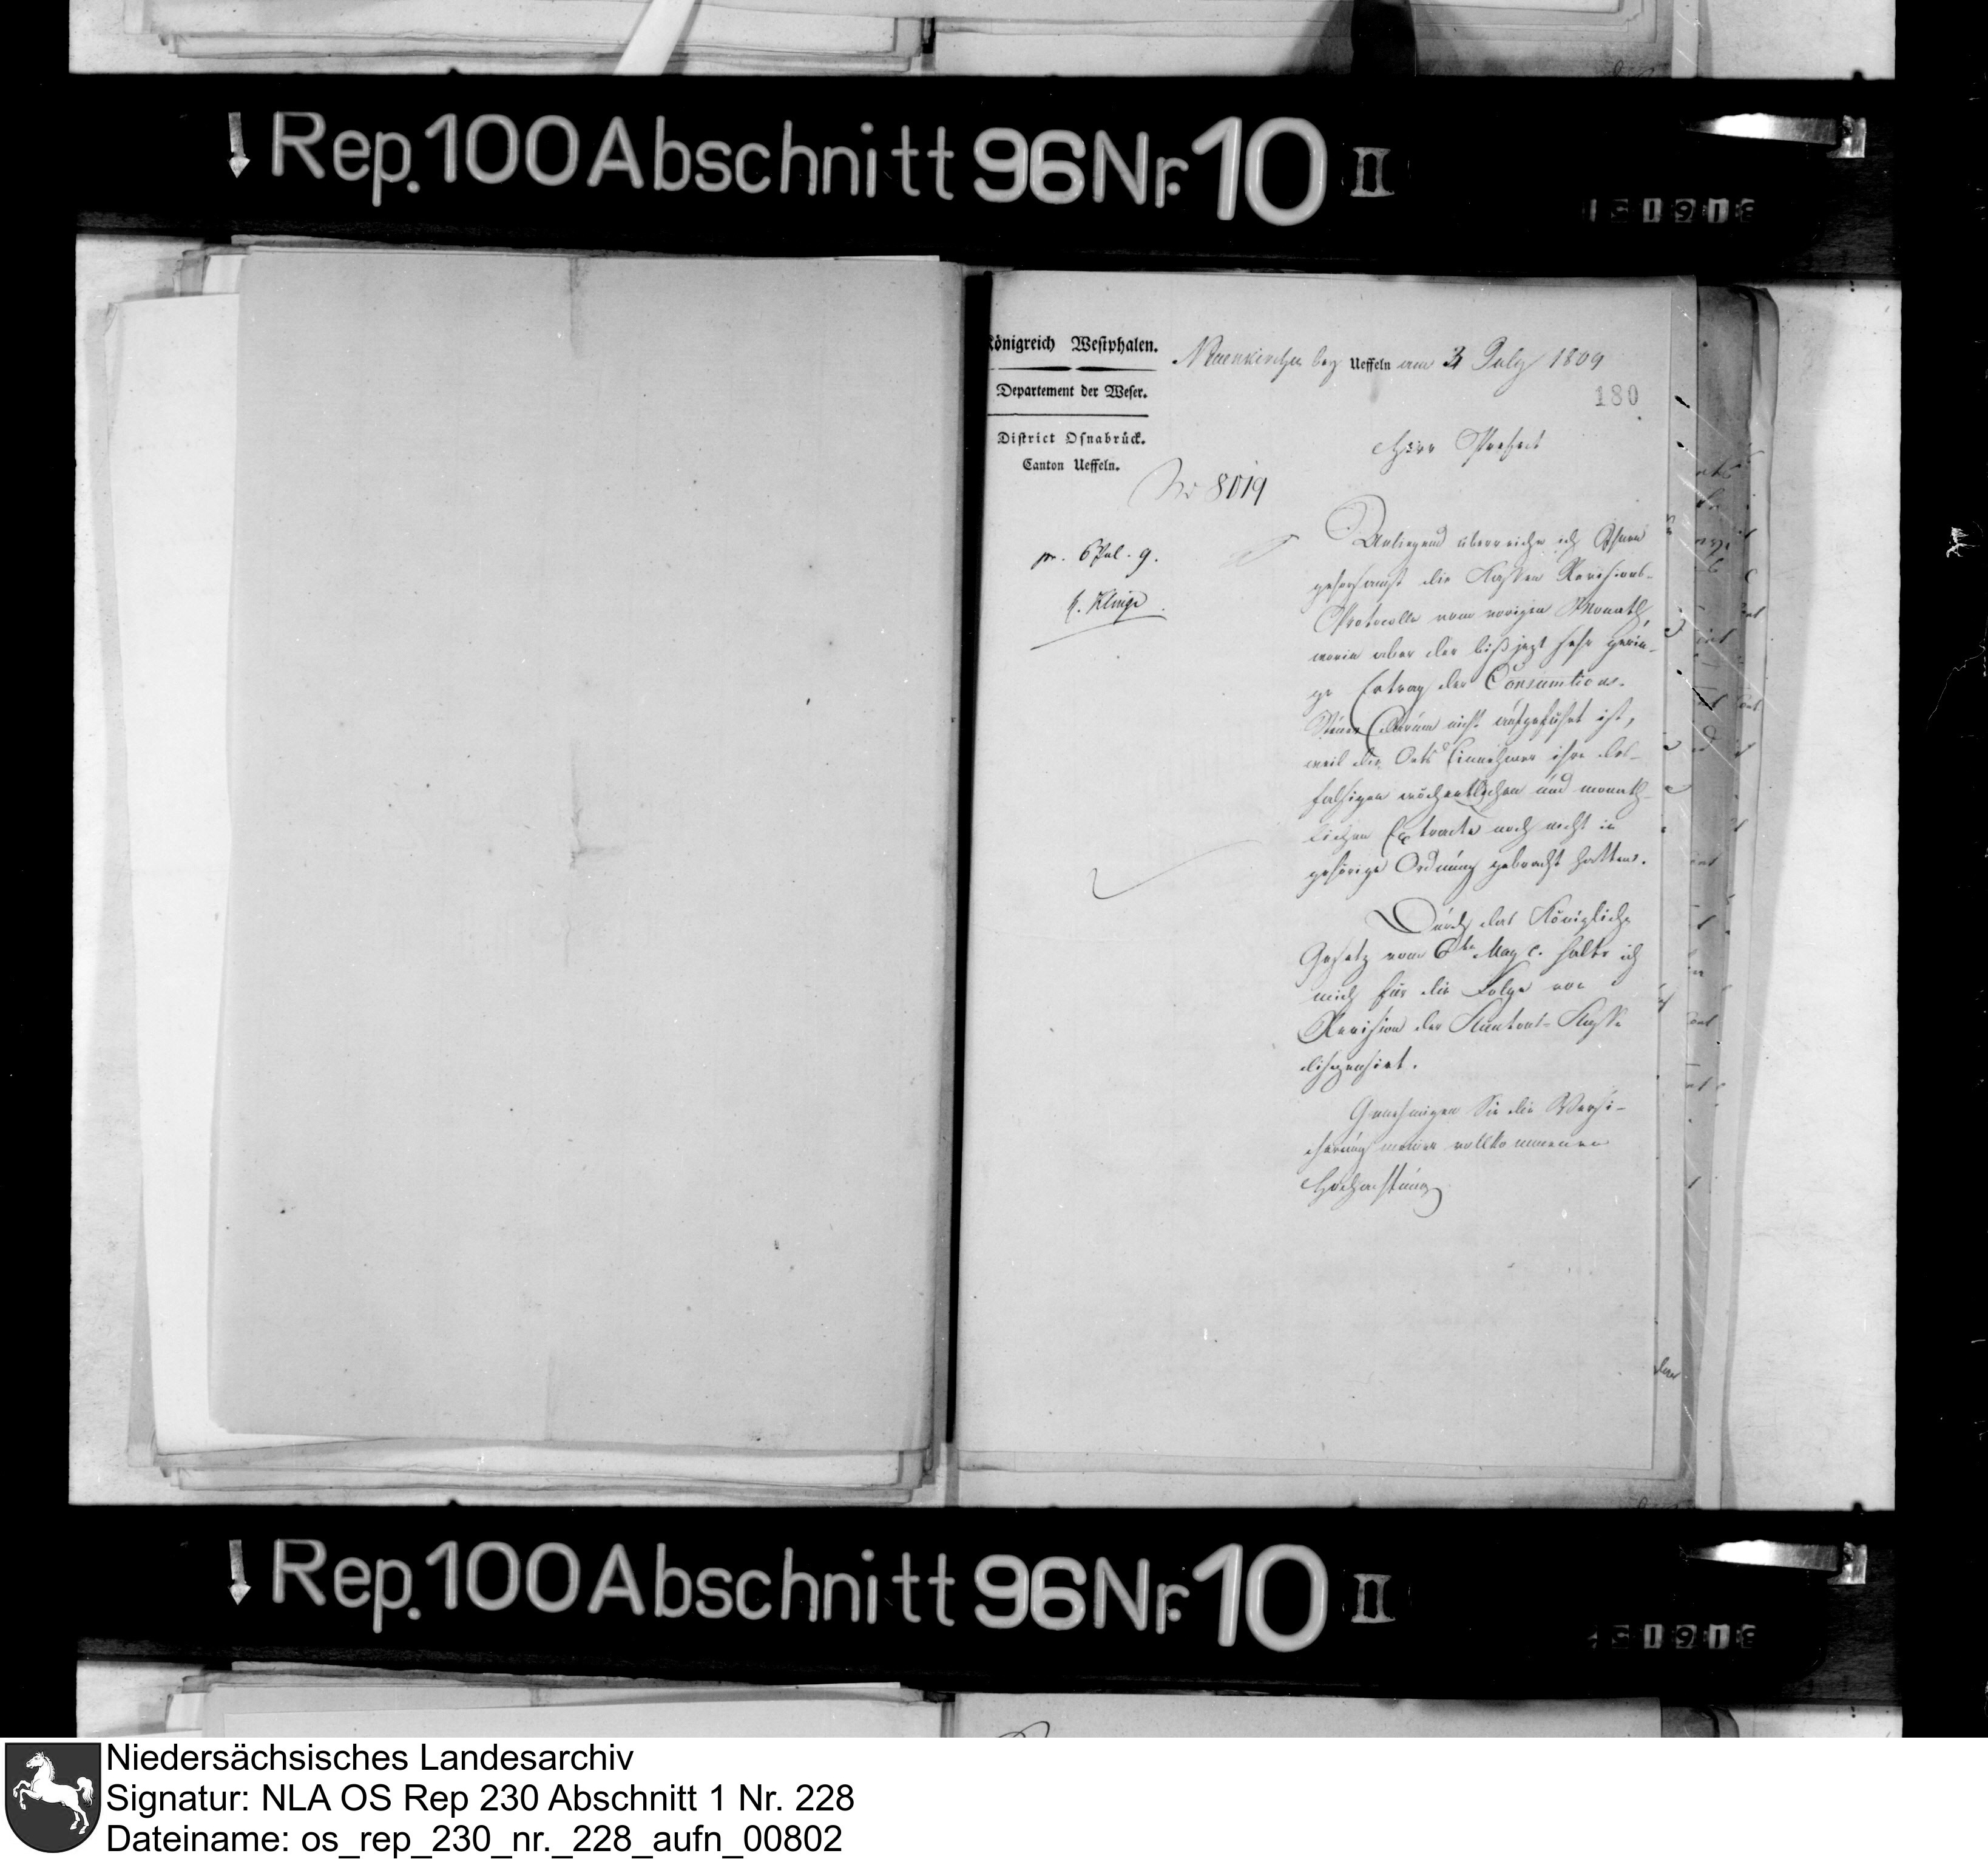 Rep. 100 Abschnitt 96 Nr. 10 II
Königreich Westphalen.
Departement der Weser.
District Osnabrück.
Canton Ueffeln.
Neuenkirchen bey Ueffeln am 3 July 1809
180
Herr Präfect
No 8019
pr. 6 Jul. 9.
Anliegend überreiche ich Ihnen
gehorsamst die Kassen Revisions-
Protocolle vom vorigen Monath,
worin aber der biß jezt sehr gerin-
ge Ertrag der Consumtions-
Steuer darum nicht aufgeführt ist,
weil die Orts Einnehmer ihre des-
falsigen wöchentlichen und monath-
lichen Extracte noch nicht in
gehörige Ordnung gebracht hatten.
Durch das Königliche
Gesetz vom 6ten May c. halte ich
mich für die Folge von
Revision der Kantons-Kasse
dispensirt.
Genehmigen Sie die Versi-
cherung meiner vollkommenen
Hochachtung
Rep. 100 Abschnitt 96 Nr. 10 II
Niedersächsisches Landesarchiv
Signatur: NLA OS Rep 230 Abschnitt 1 Nr. 228
Dateiname: os_rep_230_nr._228_aufn_00802